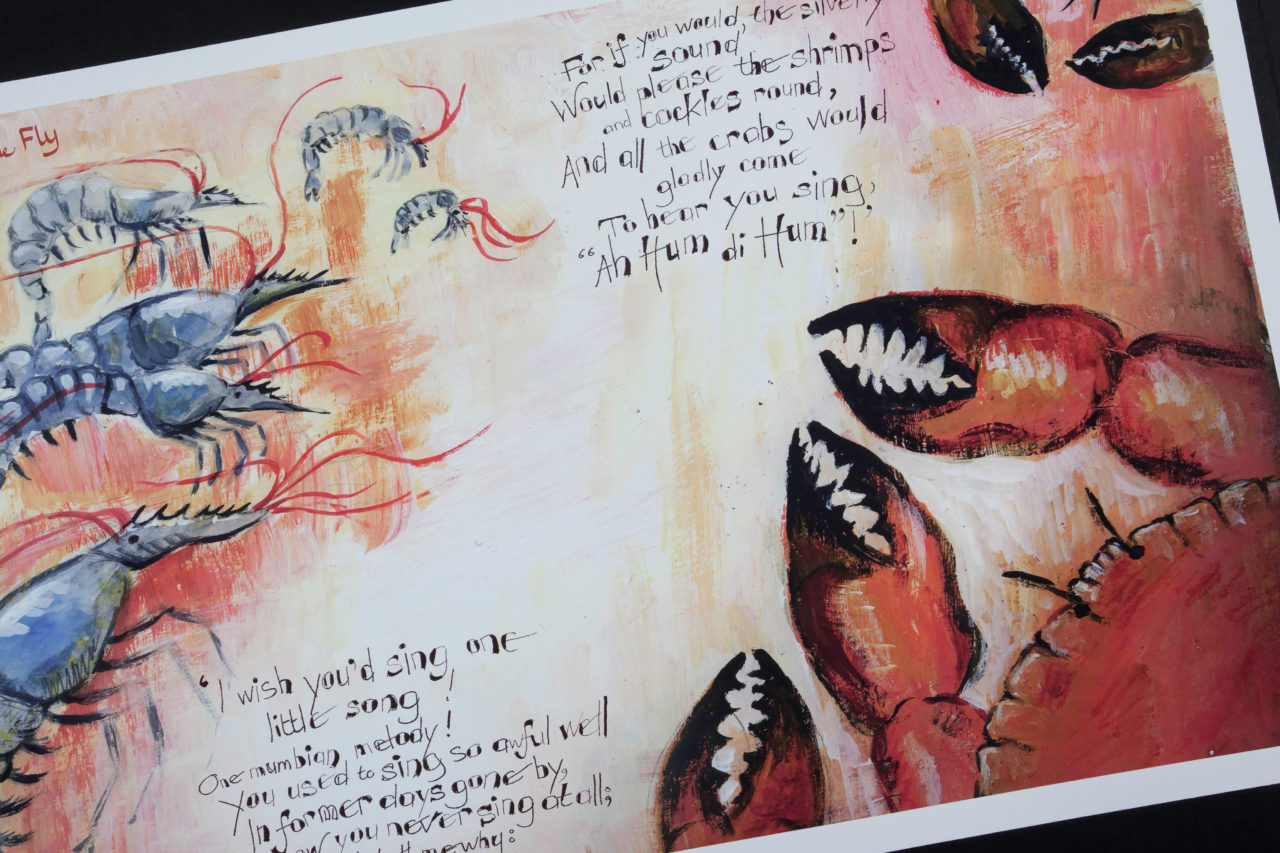 Fly
For if you would, the silvery
sound
Would please the shrimps
and cockles round,
And all the crabs would
gladly come
To hear you sing,
“Ah Hum di Hum”!’
‘I wish you'd sing, one
little song!
One mumbian melody!
You used to sing so awful well
In former days gone by,
you never sing at all;
me why: